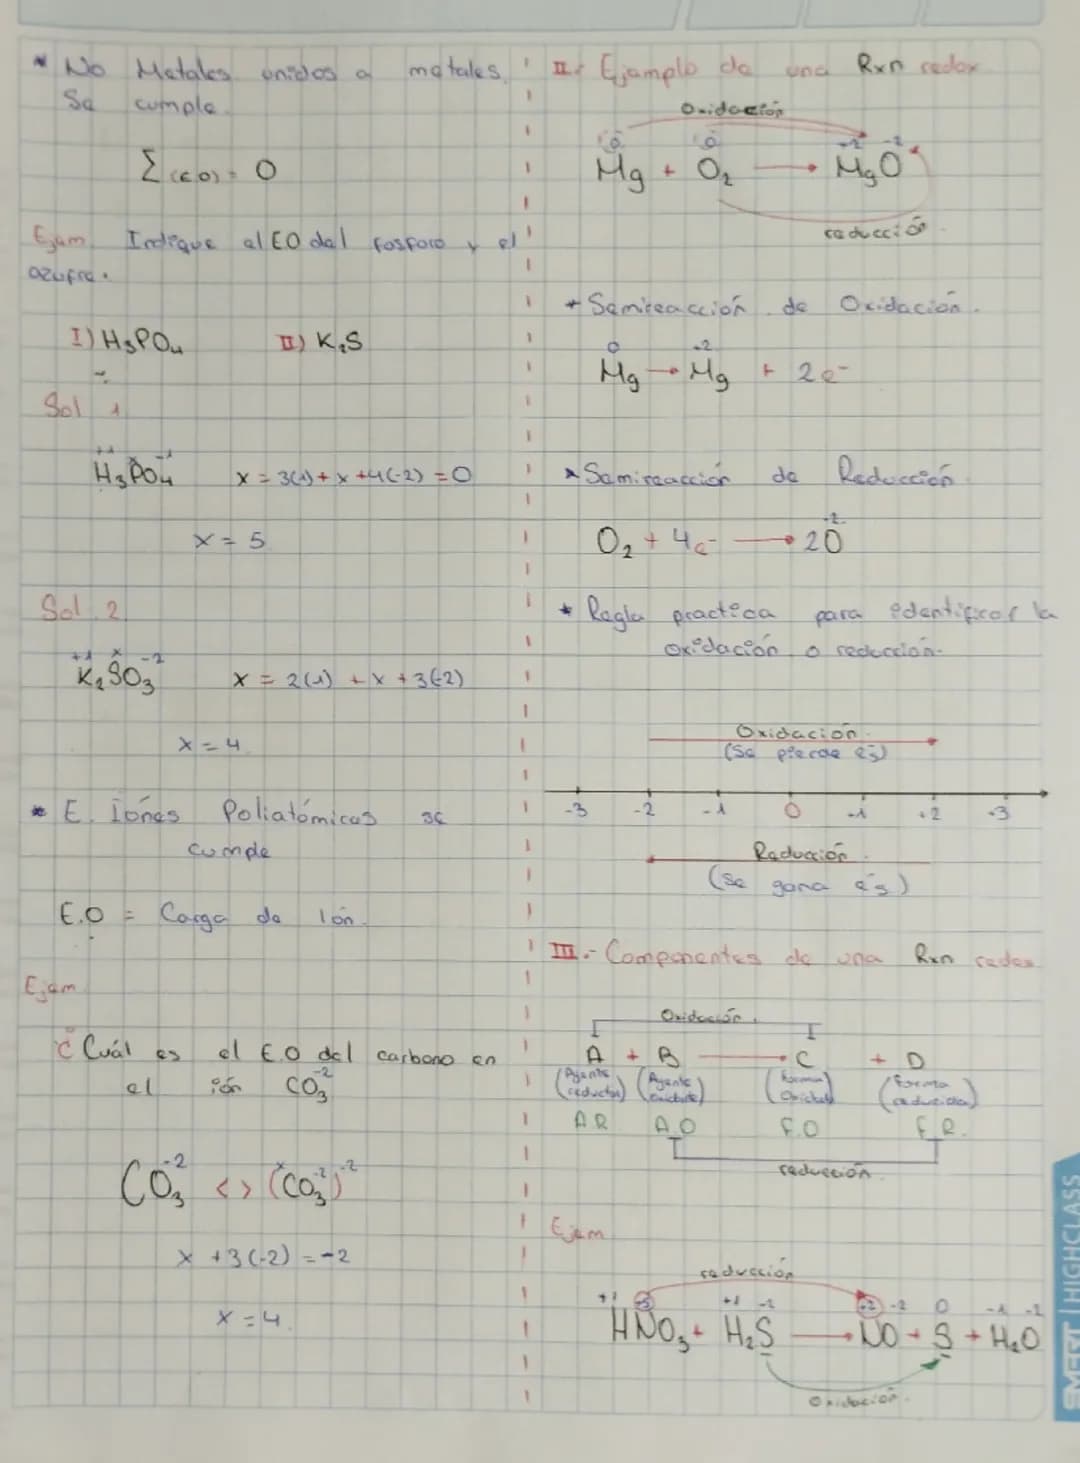 * No Metales unidos a metales.
Se cumple.
Σ(E.O) = 0
Ejem. Indique el EO del fosforo y el
azufre.
I) H₃PO₄ II) K₂S
Sol 1
+1 x -2
H₃PO₄ x = 3(1) + x + 4(-2) = 0
x = 5
Sol. 2
+1 x -2
K₂SO₃ x = 2(1) + x + 3(-2)
x = 4
* E. Iónes Poliatómicos se
cumple
E.O = Carga de Ión.
Ejem
¿Cuál es el E.O del carbono en
el ión CO₃⁻²
CO₃⁻² <> (CO₃)⁻²
x + 3(-2) = -2
x = 4
II.- Ejemplo de una Rxn redox
Oxidación
0 0 +2 -2
Mg + O₂ → MgO
reducción
* Semireacción de Oxidación.
0 +2
Mg → Mg + 2e⁻
* Semireacción de Reducción
-2
O₂ + 4e⁻ → 2O
* Regla practica para identificar la
oxidación o reducción.
Oxidación
(Se pierde e⁻s)
-3 -2 -1 0 +1 +2 +3
Reducción
(Se gana e⁻s)
III.- Componentes de una Rxn redox
Oxidación
A + B → C + D
(Agente reductor) (Agente Oxidante) (Forma Oxidada) (Forma reducida)
A.R A.O F.O F.R.
reducción
Ejem
reducción
+1 +5 +1 -2 +2 -2 0 -1 -2
HNO₃ + H₂S → NO + S + H₂O
Oxidación
SMEET | HIGHCLASS